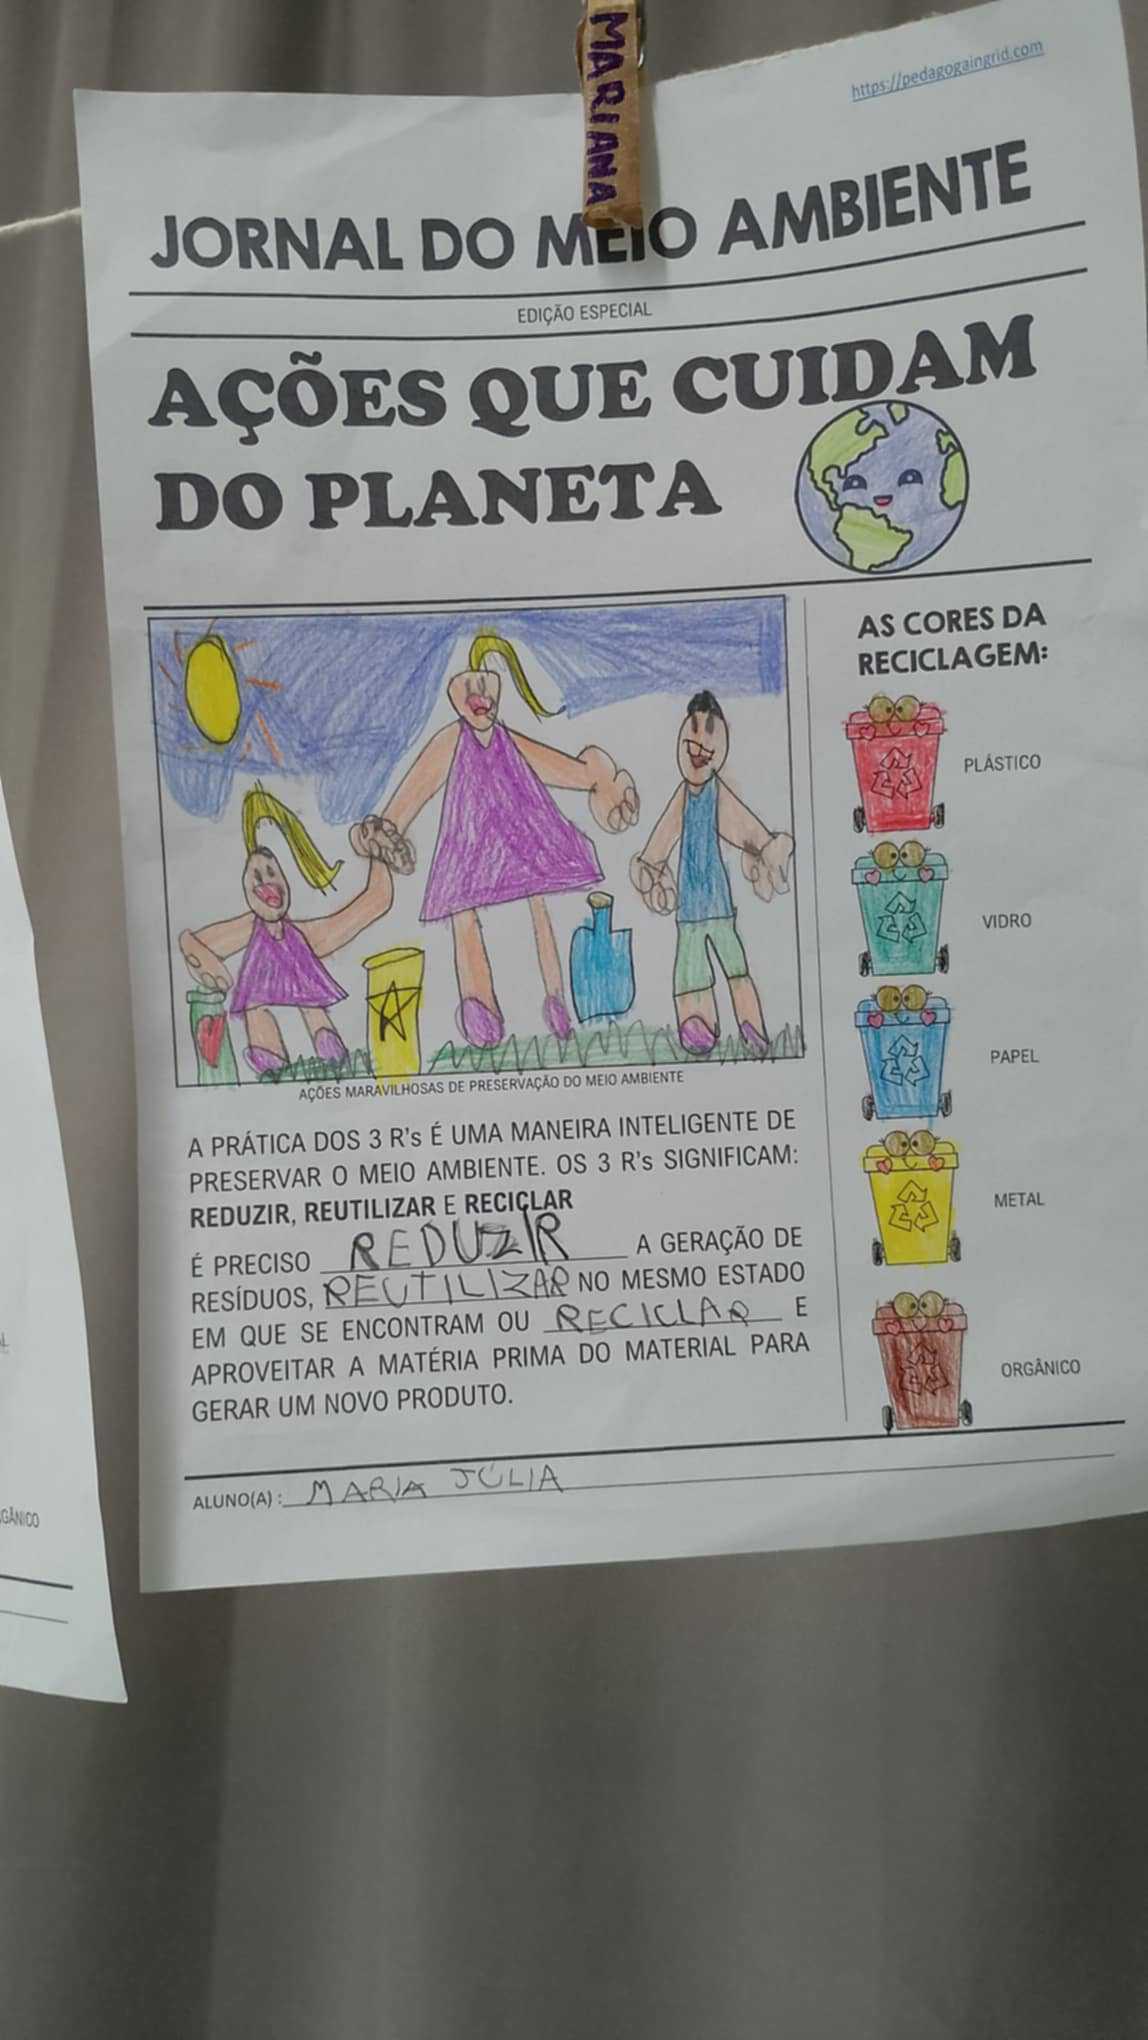 MARIANA
https://pedagogaingrid.com
JORNAL DO MEIO AMBIENTE
EDIÇÃO ESPECIAL
AÇÕES QUE CUIDAM
DO PLANETA
AÇÕES MARAVILHOSAS DE PRESERVAÇÃO DO MEIO AMBIENTE
A PRÁTICA DOS 3 R's É UMA MANEIRA INTELIGENTE DE
PRESERVAR O MEIO AMBIENTE. OS 3 R's SIGNIFICAM:
REDUZIR, REUTILIZAR E RECICLAR
É PRECISO REDUZIR A GERAÇÃO DE
RESÍDUOS, REUTILIZAR NO MESMO ESTADO
EM QUE SE ENCONTRAM OU RECICLAR E
APROVEITAR A MATÉRIA PRIMA DO MATERIAL PARA
GERAR UM NOVO PRODUTO.
AS CORES DA
RECICLAGEM:
PLÁSTICO
VIDRO
PAPEL
METAL
ORGÂNICO
ALUNO(A) : MARIA JÚLIA